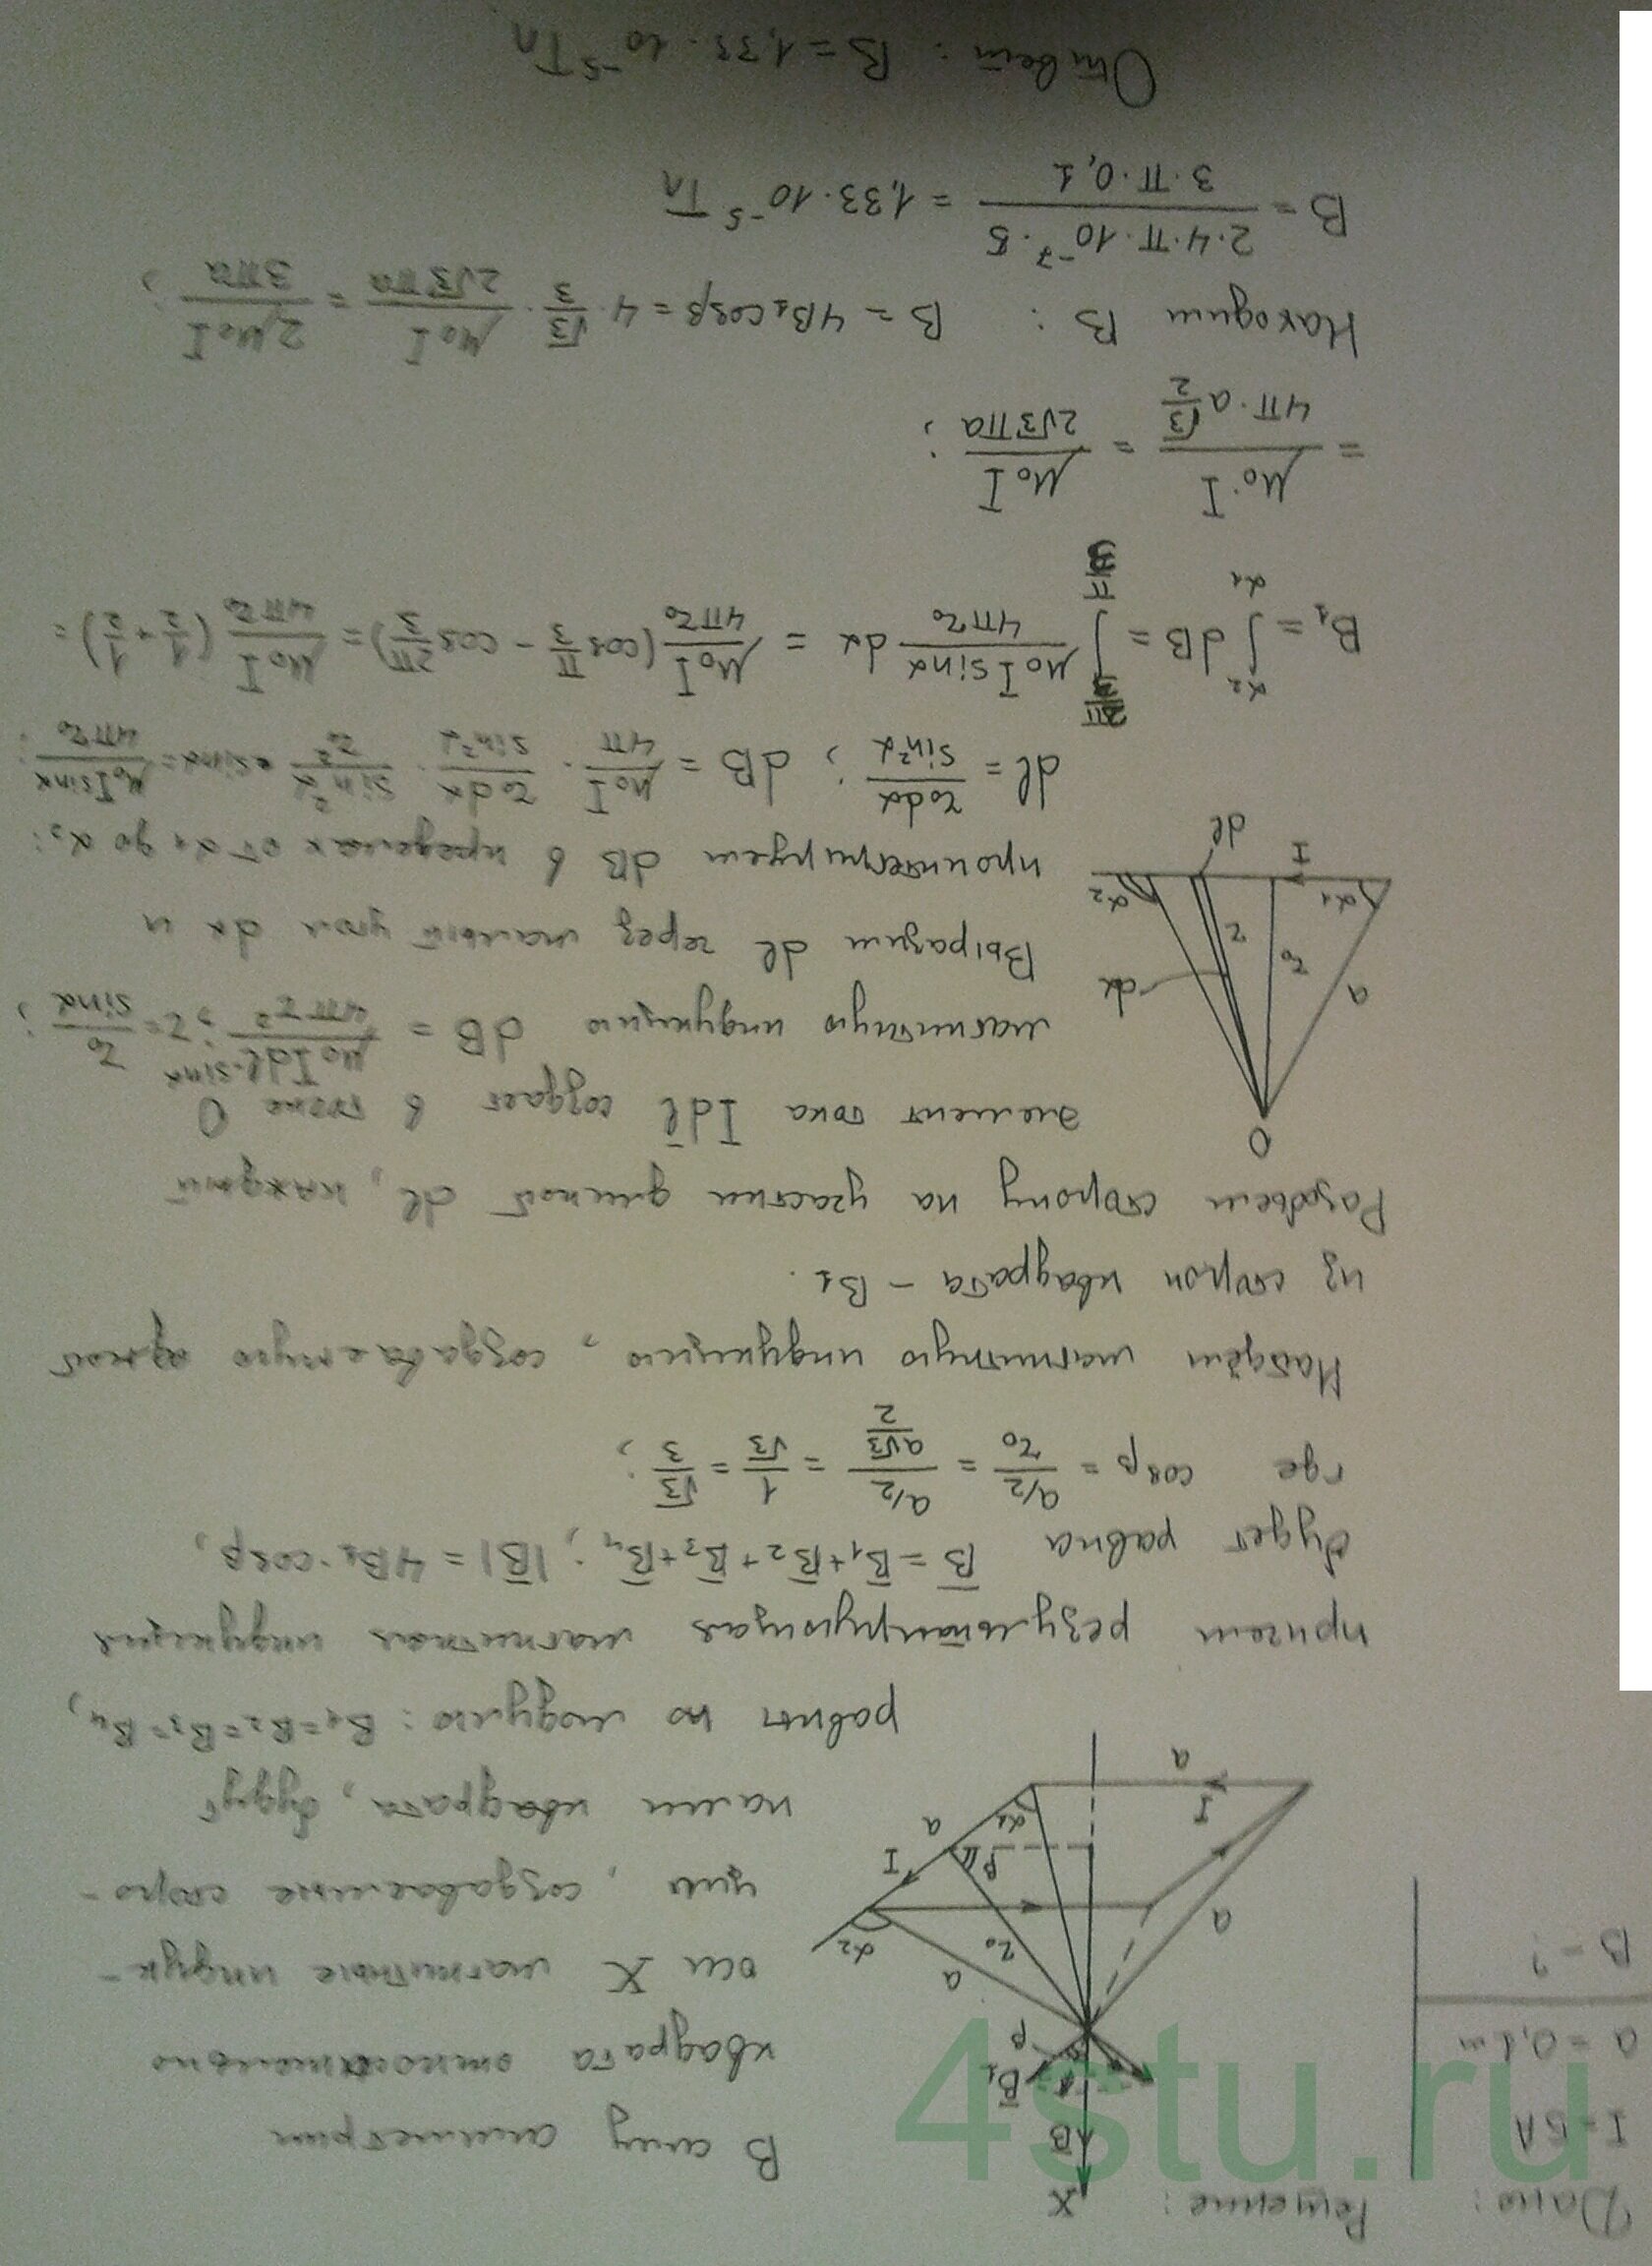 Дано:
I = 5А
a = 0,1 м
B - ?
Решение:
X
B̄
B̄₁
β
a
r₀
α₂
a
I
β
a
α₁
I
a
В силу симметрии
квадрата относительно
оси X магнитные индук-
ции, создаваемые сторо-
нами квадрата, будут
равны по модулю: B₁=B₂=B₃=B₄,
причем результирующая магнитная индукция
будет равна B̄ = B̄₁+B̄₂+B̄₃+B̄₄; |B̄| = 4B₁·cosβ,
где cosβ = (a/2)/r₀ = (a/2)/(a√3/2) = 1/√3 = √3/3;
Найдём магнитную индукцию, создаваемую одной
из сторон квадрата - B₁.
Разобьем сторону на участки длиной dl, каждый
элемент тока Idl̄ создает в точке O
магнитную индукцию dB = μ₀Idl·sinα/4πr²; r = r₀/sinα;
Выразим dl через малый угол dα и
проинтегрируем dB в пределах от α₁ до α₂:
O
a
r₀
r
dα
α₁
I
dl
α₂
dl = r₀dα/sin²α; dB = μ₀I/4π · r₀dα/sin²α · sin²α/r₀² · sinα = μ₀Isinα/4πr₀;
B₁ = ∫α₁^α₂ dB = ∫π/3^2π/3 μ₀I sinα/4πr₀ dα = μ₀I/4πr₀ (cos π/3 - cos 2π/3) = μ₀I/4πr₀ (1/2 + 1/2) =
= μ₀·I/(4π·a √3/2) = μ₀I/2√3πa;
Находим B: B = 4B₁cosβ = 4·√3/3 · μ₀I/2√3πa = 2μ₀I/3πa;
B = 2·4·π·10⁻⁷·5/3·π·0,1 = 1,33·10⁻⁵ Тл
Ответ: B = 1,33·10⁻⁵ Тл
4stu.ru